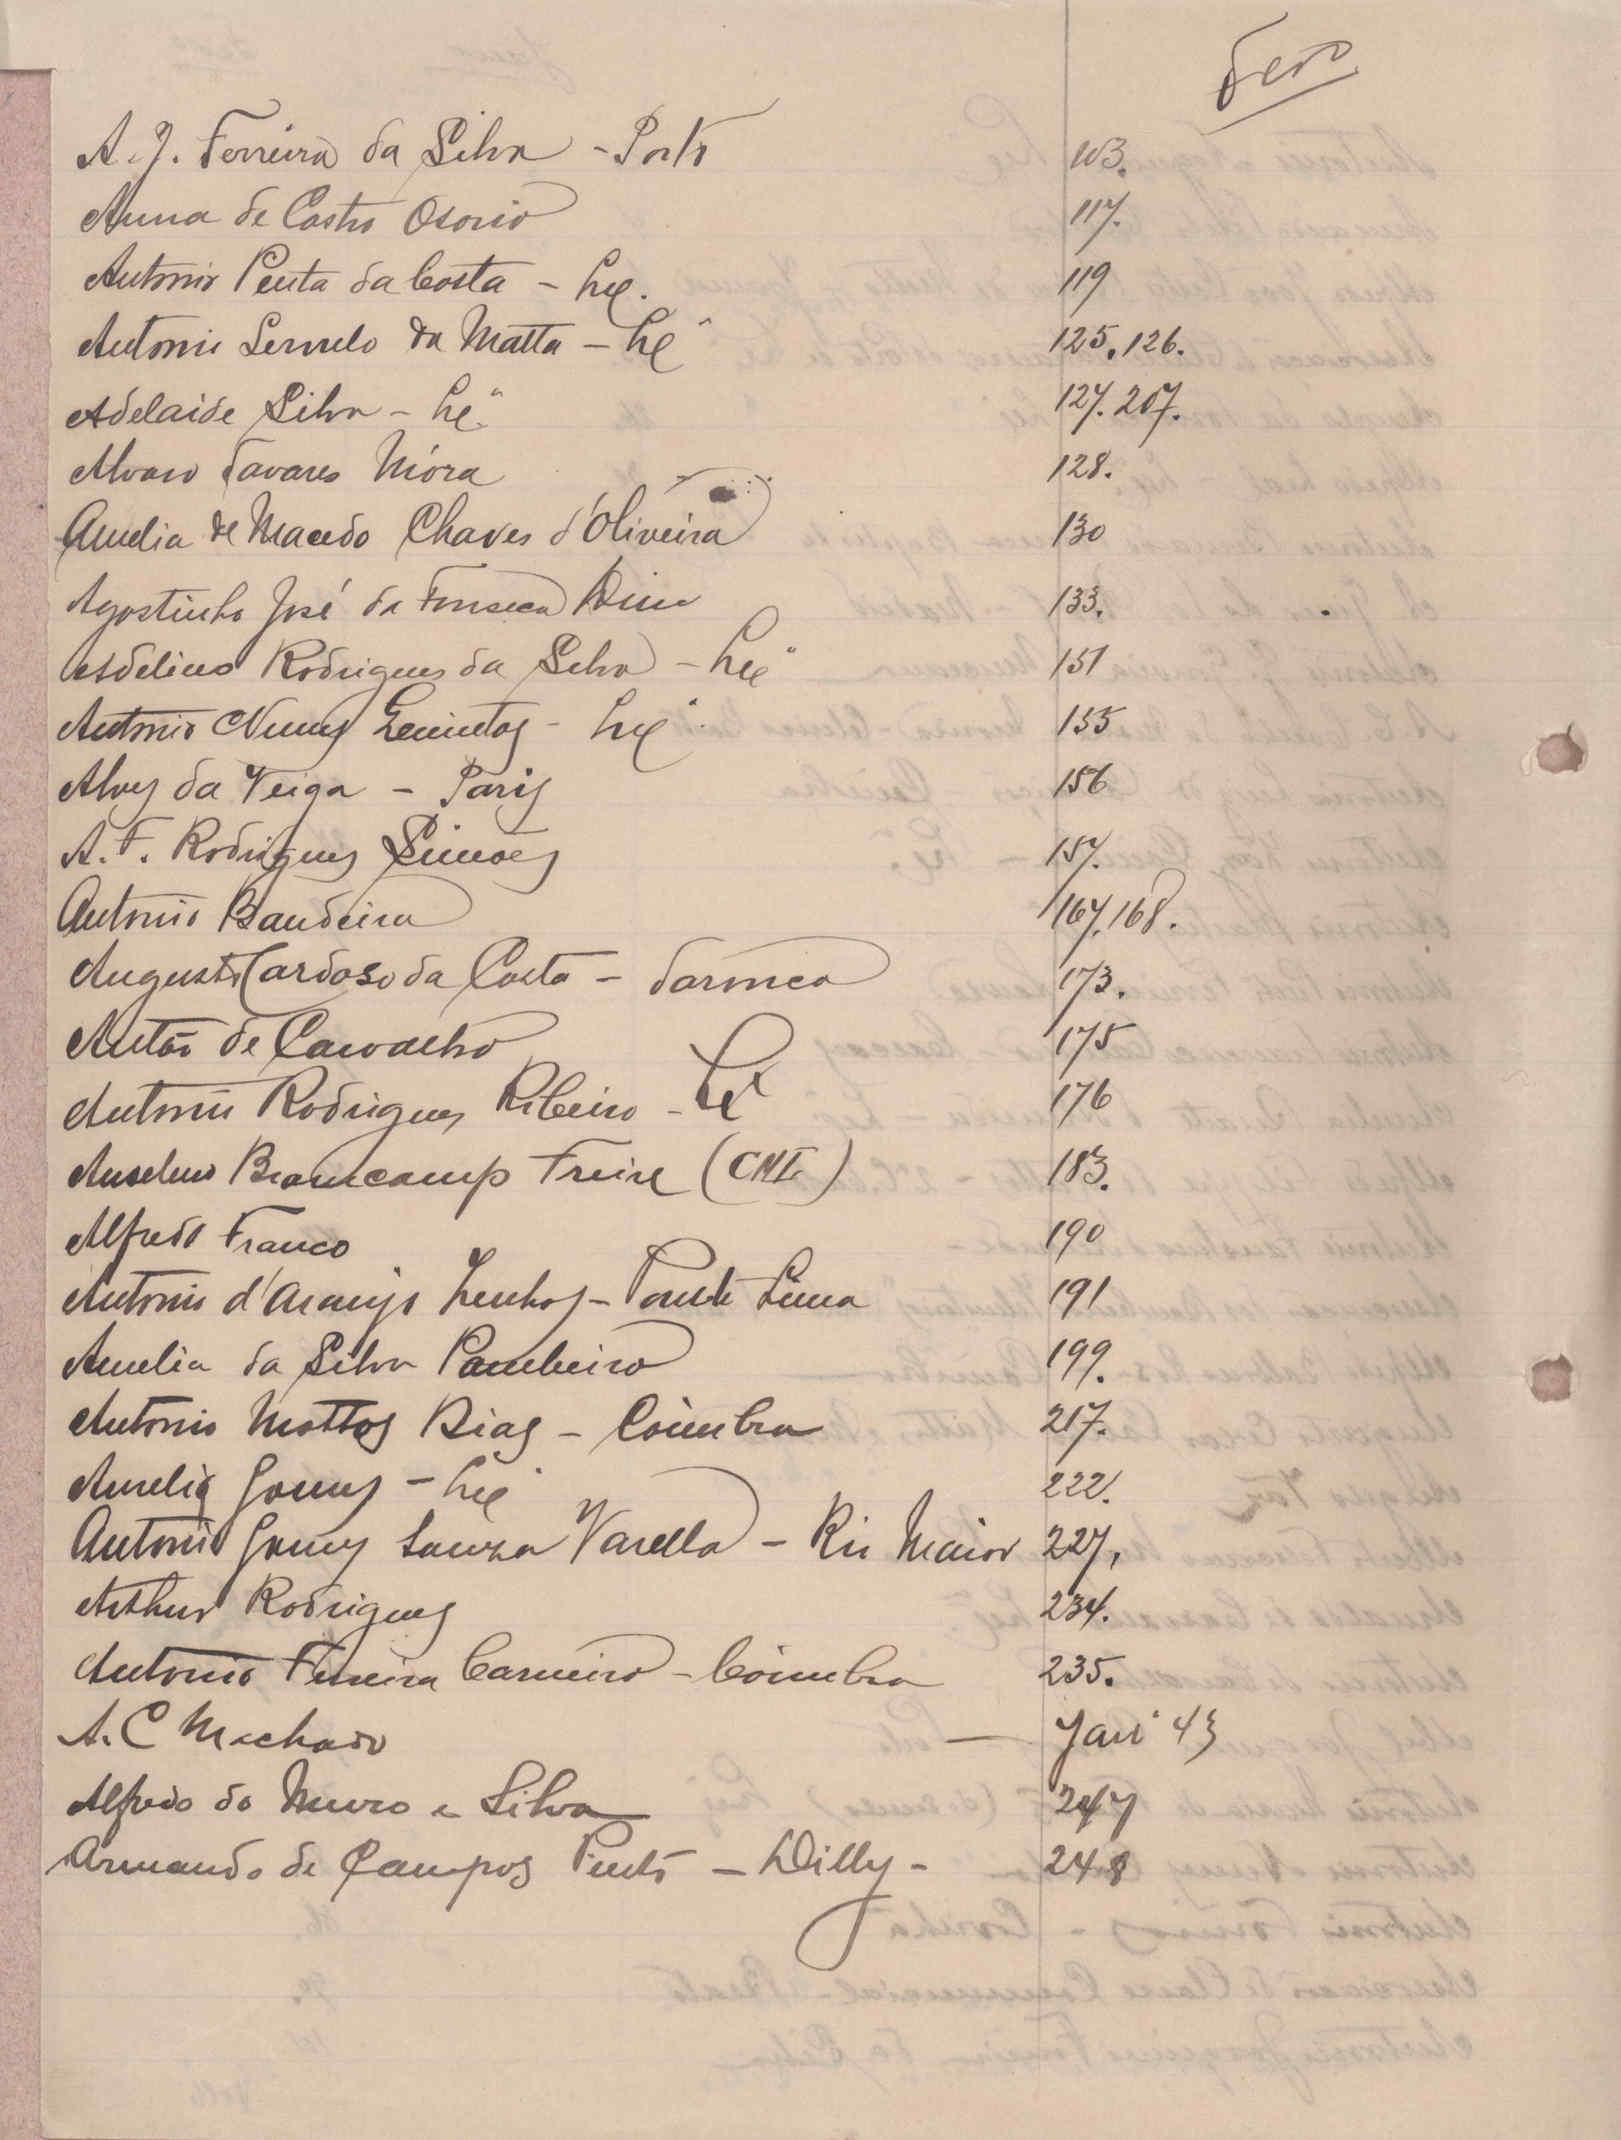 Fevº
A. J. Ferreira da Silva - Porto 103.
Anna de Castro Osorio 117.
Antonio Penta da Costa - Lxª. 119
Antonio da Matta - Lxª 125, 126.
Adelaide Silva - Lxª 127. 207.
Alvaro Tavares Móra 128.
Amelia de Macedo Chaves d'Oliveira 130
Agostinho José da Fonseca 133.
Adelino Rodrigues da Silva - Lxª 151
Antonio Nunes - Lxª 155
Alves da Veiga - Paris 156
A. F. Rodrigues Simões 157.
Antonio Bandeira 167, 168.
Augusto Cardoso da Costa - 173.
Antão de Carvalho 175
Antonio Rodrigues Ribeiro - Lxª 176
Anselmo Braamcamp Freire 183.
Alfredo Franco 190
Antonio d'Araujo - Ponte Lima 191
Amelia da Silva 199.
Antonio Mattos Dias - Coimbra 217.
Amelia Gomes - Lxª 222.
Antonio Gomes Souza Varella - Rio Maior 227,
Arthur Rodrigues 234.
Antonio Ferreira Carneiro - Coimbra 235.
A. C Machado — Janº 43
Alfredo do e Silva 247
Armando de Campos Pinto - Dilly - 248